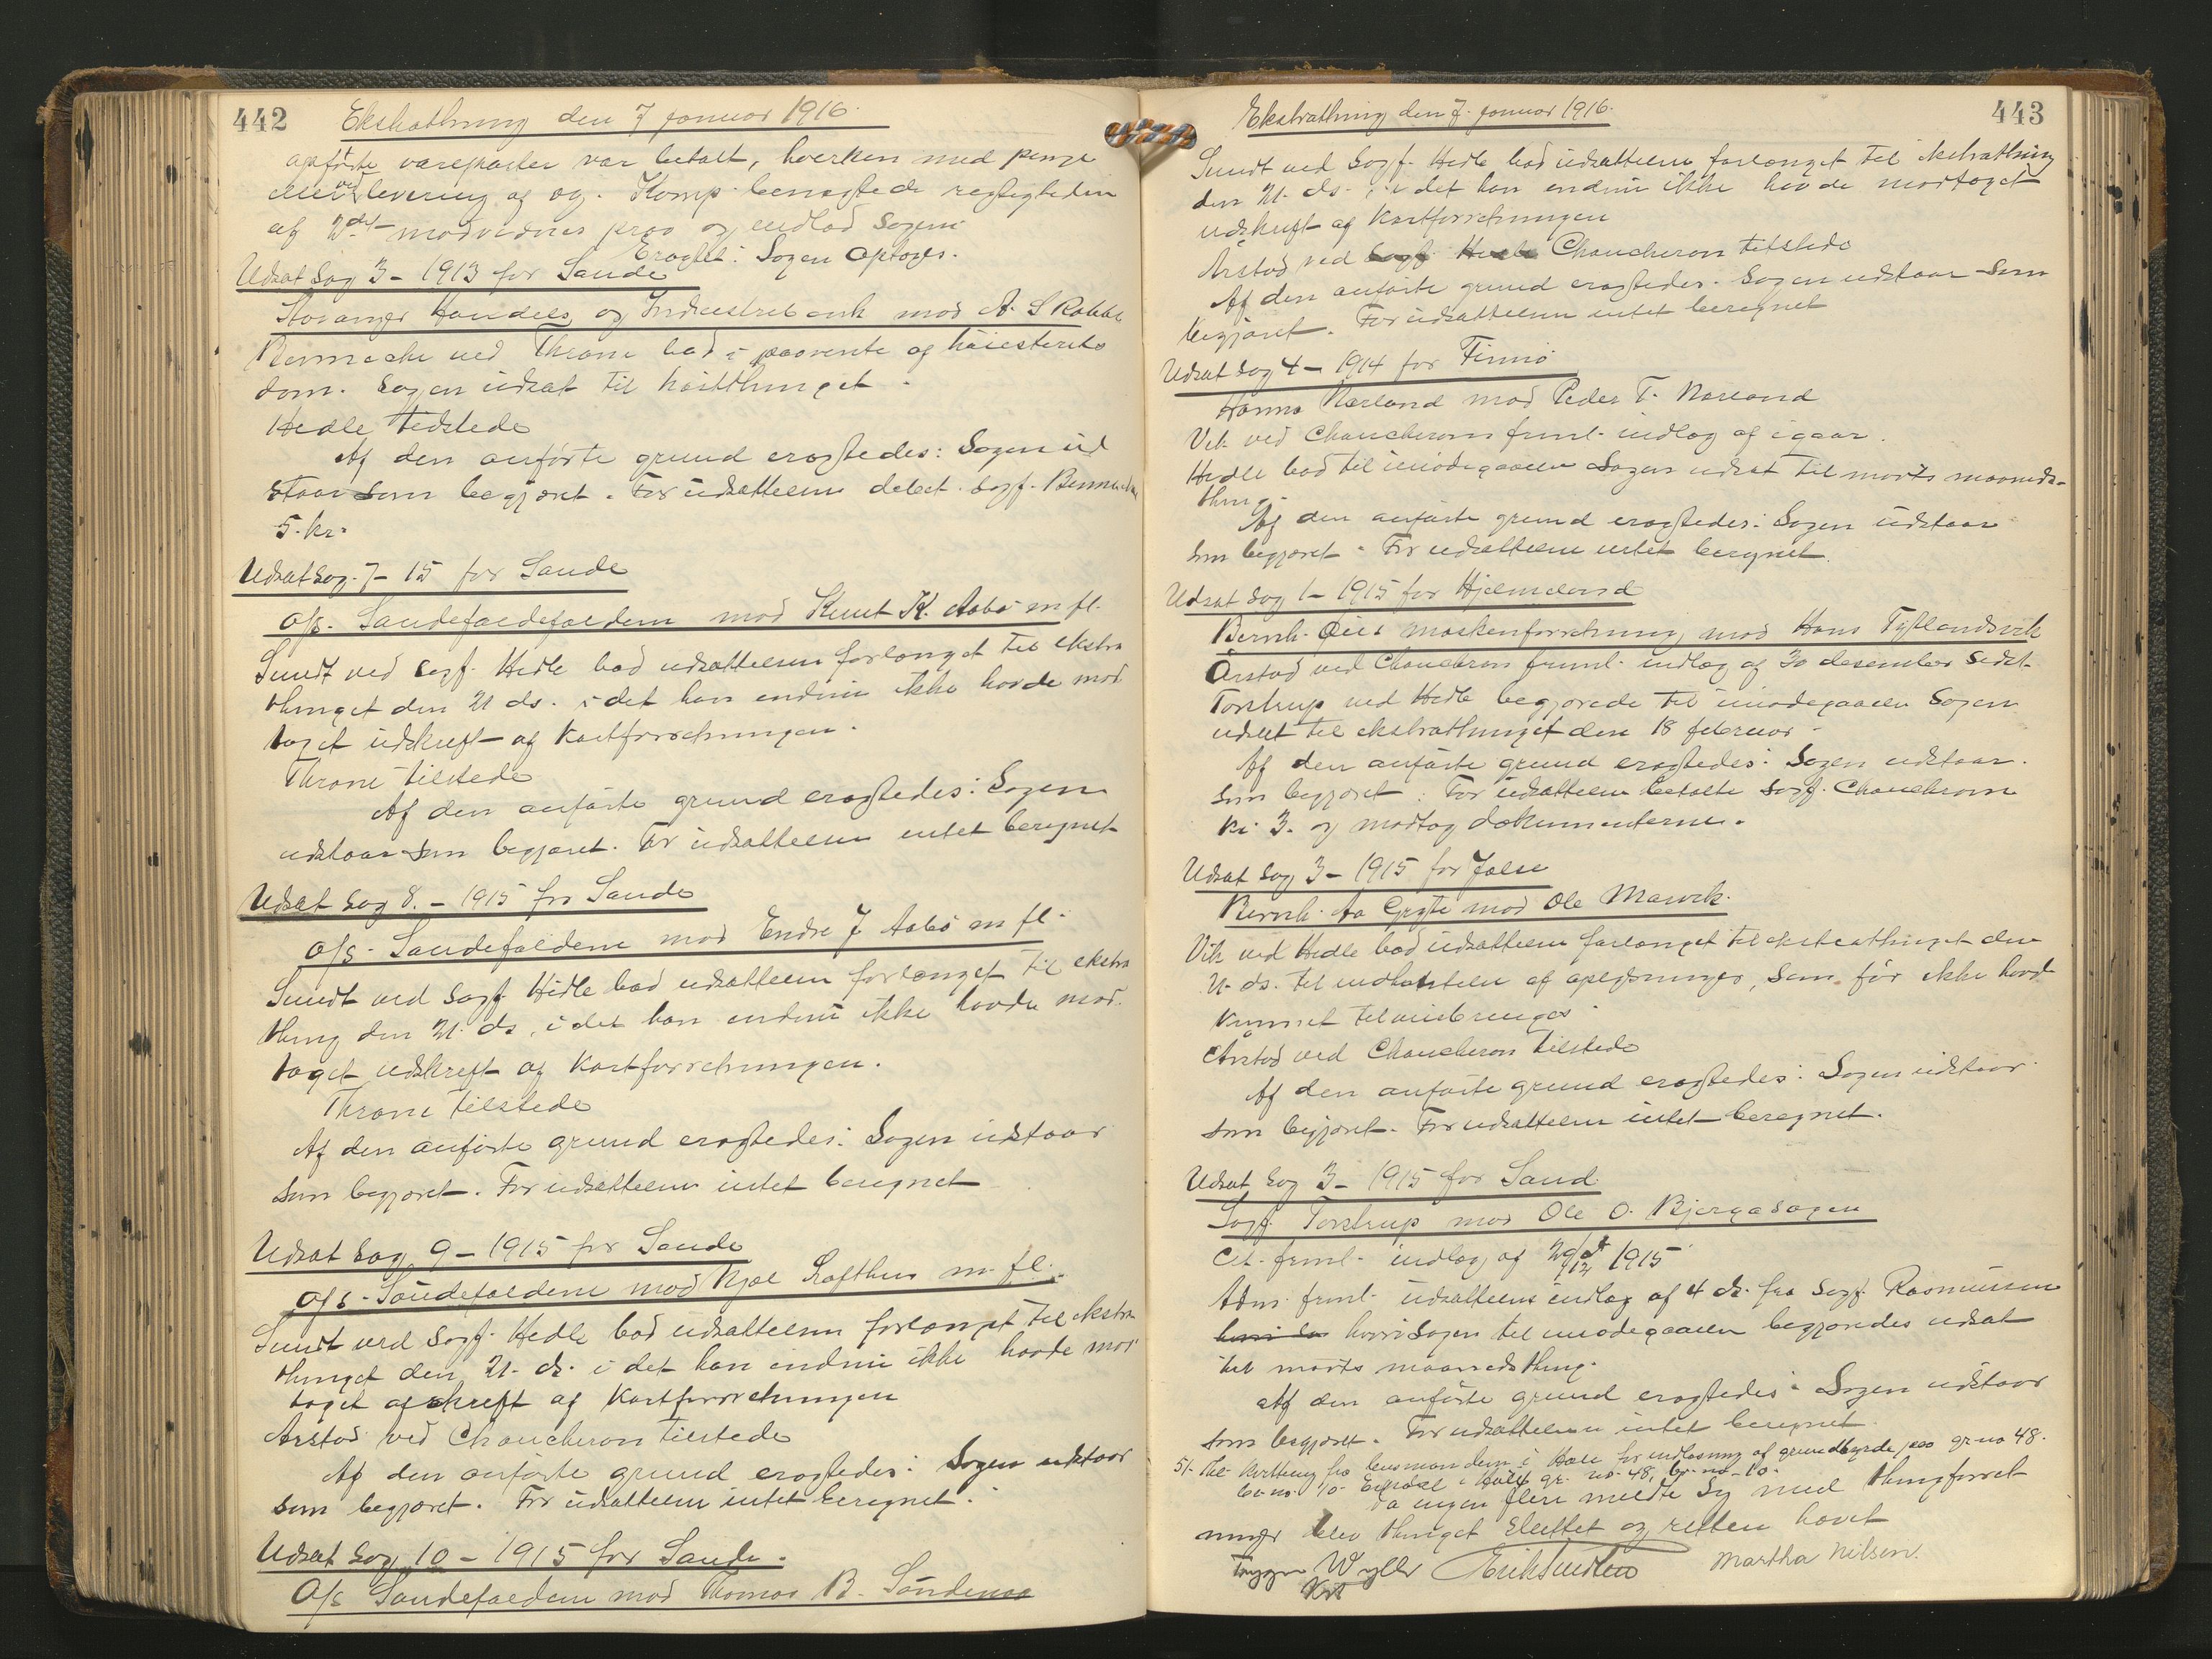 442 Ekstrathing den 7 januar 1916.
opførte vareposter var betalt, hverken med penge
eller ved levering af og. Komp. benægtede rigtigheden
af modvidnes prov og indlod sagen
Eragtet: Sagen optoges.
Udsat Sag 3 - 1913 for Sande
Stavanger Handels og Industribank mod A. S. Rabbe
Benneche ved Thrane bad i paavente af høiesterets
dom. Sagen udsat til høstthinget.
Hedle tilstede
Af den anførte grund eragtedes: Sagen ud
staar som begjæret. For udsættelsen debet. sagf. Benneche
5. kr.
Udsat Sag. 7 - 15 for Sande
O/s. Saudefaldefaldene mod Knut K. Aabø m fl.
Sundt ved sagf. Hedle bad udsættelsen forlænget til ekstra
thinget den 21 ds. i det han endnu ikke havde mod
taget udskrift af kartforretningen.
Thrane tilstede
Af den anførte grund eragtedes: Sagen
udstaar som begjæret. For udsættelsen intet beregnet
Udsat Sag 8. - 1915 for Sande
O/s. Saudefaldene mod Endre J Aabø m fl.
Sundt ved sagf. Hedle bad udsættelsen forlænget til ekstra
thing den 21. ds. i det han endnu ikke havde mod.
taget udskrift af kartforretningen.
Thrane tilstede
Af den anførte grund eragtedes: Sagen udstaar
som begjæret. For udsættelsen intet beregnet
Udsat Sag 9 - 1915 for Sande
O/s - Saudefaldene mod Kjel Lofthus m. fl.
Sundt ved Sagf. Hedle bad udsættelsen forlænget til ekstra
thinget den 21. ds. i det han endnu ikke havde mod
taget afskrift af kartforretningen
Arstad ved Chaucheron tilstede
Af den anførte grund eragtedes: Sagen udstaar
som begjæret. For udsættelsen intet beregnet.
Udsat Sag 10 - 1915 for Sande.
O/s Saudefaldene mod Thomas B. Søndenaa
Ekstrathing den 7. januar 1916. 443
Sundt ved Sagf. Hedle bad udsættelsen forlænget til ekstrathing
den 21. ds. i det han endnu ikke havde modtaget
udskrift af kartforretningen
Årstad ved sagf. Hedle Chaucheron tilstede
Af den anførte grund eragtedes. Sagen udstaar som
begjæret. For udsættelsen intet beregnet
Udsat Sag 4 - 1914 for Finnø
Hanna Nærland mod Peder T. Nærland
Vik ved Chaucheron freml. indlæg af igaar.
Hedle bad til imødegaaelse Sagen udsat til marts maaneds-
thing.
Af den anførte grund eragtedes: Sagen udstaar
som begjæret. For udsættelsen intet beregnet.
Udsat Sag 1 - 1915 for Hjelmeland
Bernh. Øies maskinforretning mod Hans Tytlandsvik
Årstad ved Chaucheron freml. indlæg af 30 desember sidst
Torstrup ved Hedle begjærede til imødegaaelse Sagen
udsat til ekstrathinget den 18 februar.
Af den anførte grund eragtedes: Sagen udstaar.
som begjæret. For udsættelsen betalte Sagf. Chaucheron
kr. 3. og modtog dokumenterne.
Udsat Sag 3 - 1915 for Jelse
Bernh. Aa Gryte mod Ole Marvik.
Vik ved Hedle bad udsættelsen forlænget til ekstrathinget den
21. ds. til indhentelse af oplysninger, som før ikke havde
kunnet tilveiebringes
Årstad ved Chaucheron tilstede
Af den anførte grund eragtedes: Sagen udstaar
som begjæret. For udsættelsen intet beregnet.
Udsat Sag 3 - 1915 for Sand.
Sagf. Torstrup mod Ole O. Bjergasagen
Cit. freml. indlæg af 29/12 1915
Adm. freml. udsættelses indlæg af 4 ds. fra Sagf. Rasmussen
hvori Sa hvori Sagen til imødegaaelse begjæredes udsat
til marts maaneds thing.
Af den anførte grund eragtedes: Sagen udstaar
som begjæret. For udsættelsen intet beregnet.
51. Thl. kvittering fra lensmanden i for indløsning af grundbyrde paa gr. no 48.
br. no. 10 i gr. no. 48, br. no. 10.
Da ingen flere meldte sig med thingforret
ninger blev thinget sluttet og retten hævet
Trygve Wyller Erik Martha Nilsen.
Kst